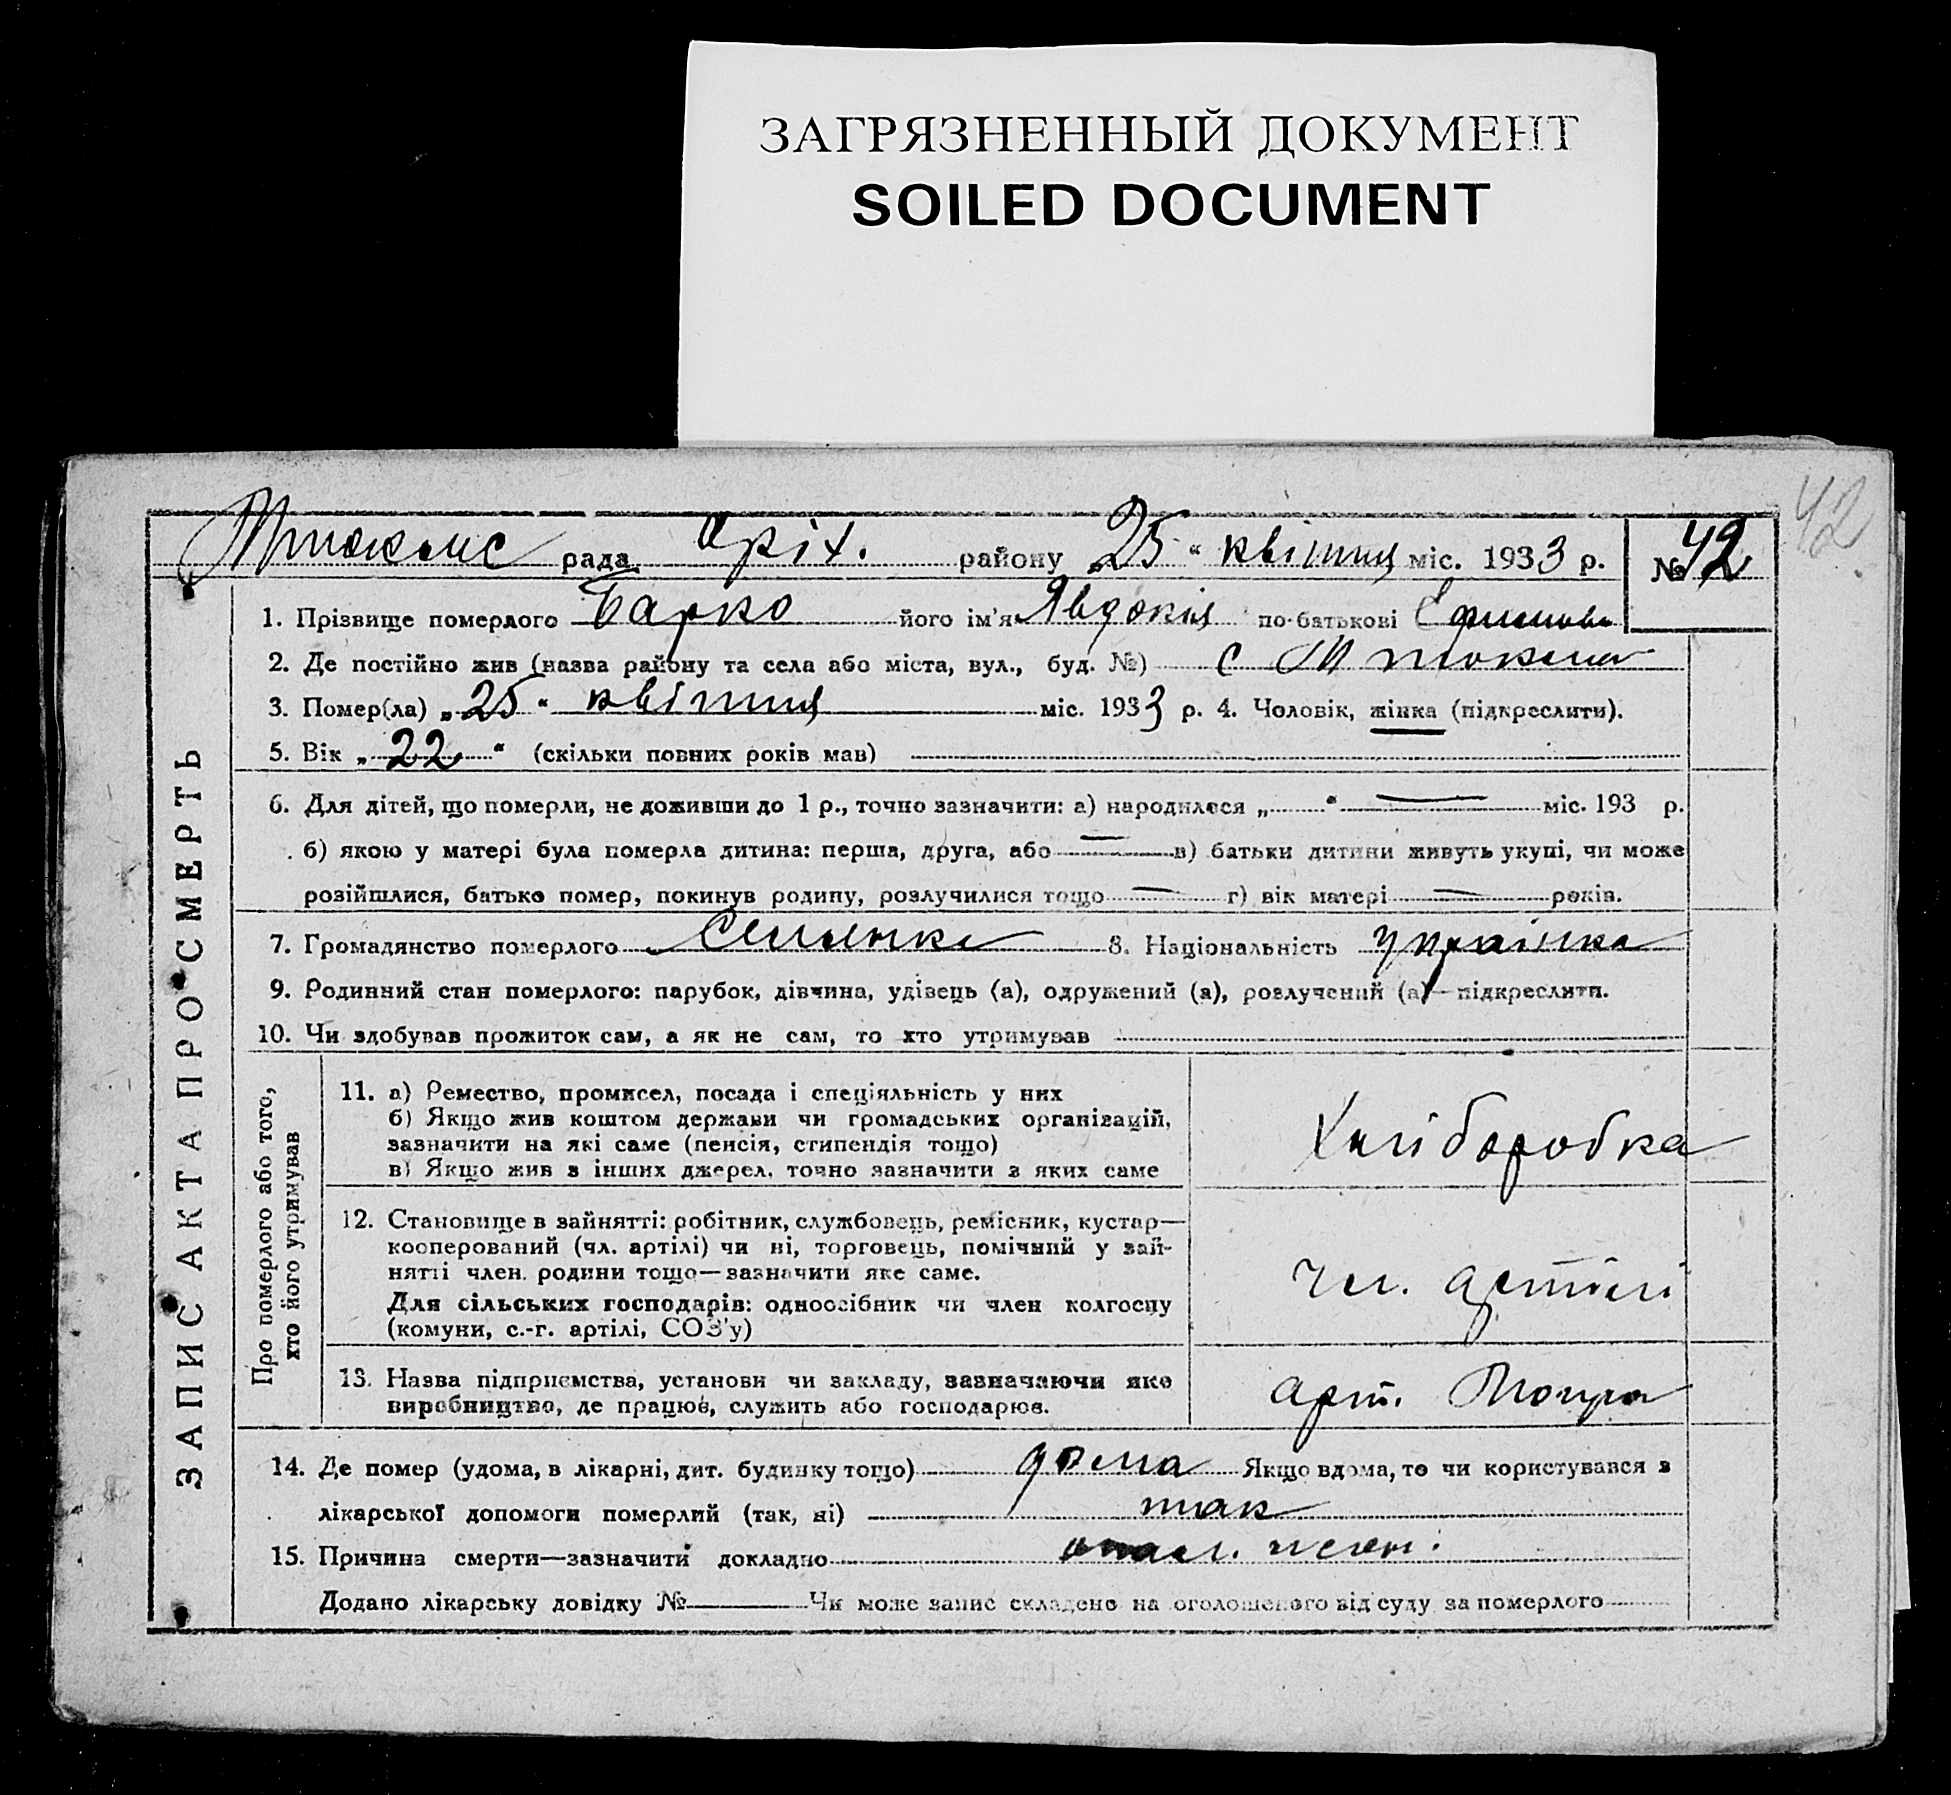 ЗАГРЯЗНЕННЫЙ ДОКУМЕНТ
SOILED DOCUMENT
42
рада Оріх. району „25“ квітня міс. 1933 р. № 42
ЗАПИС АКТА ПРО СМЕРТЬ
1. Прізвище померлого Барко його ім'я Явдокія по-батькові
2. Де постійно жив (назва району та села або міста, вул., буд. №) с
3. Помер(ла) „25“ квітня міс. 1933 р. 4. Чоловік, жінка (підкреслити).
5. Вік „22“ (скільки повних років мав)
6. Для дітей, що померли, не доживши до 1 р., точно зазначити: а) народилося „ “ — міс. 193 р.
б) якою у матері була померла дитина: перша, друга, або — в) батьки дитини живуть укупі, чи може
розійшлися, батько помер, покинув родину, розлучилися тощо — г) вік матері — років.
7. Громадянство померлого Селянка 8. Національність українка
9. Родинний стан померлого: парубок, дівчина, удівець (а), одружений (а), розлучений (а)—підкреслити.
10. Чи здобував прожиток сам, а як не сам, то хто утримував
Про померлого або того,
хто його утримував
11. а) Ремество, промисел, посада і спеціяльність у них
б) Якщо жив коштом держави чи громадських організацій,
зазначити на які саме (пенсія, стипендія тощо)
в) Якщо жив з інших джерел, точно зазначити з яких саме
Хліборобка
12. Становище в зайнятті: робітник, службовець, ремісник, кустар—
кооперований (чл. артілі) чи ні, торговець, помічний у зай-
нятті член родини тощо—зазначити яке саме.
Для сільських господарів: одноосібник чи член колгоспу
(комуни, с.-г. артілі, СОЗ'у)
чл. артілі
13. Назва підприємства, установи чи закладу, зазначаючи яке
виробництво, де працює, служить або господарює.
арт.
14. Де помер (удома, в лікарні, дит. будинку тощо) дома Якщо вдома, то чи користувався з
лікарської допомоги померлий (так, ні) так
15. Причина смерти—зазначити докладно
Додано лікарську довідку № Чи може запис складено на оголошеного від суду за померлого